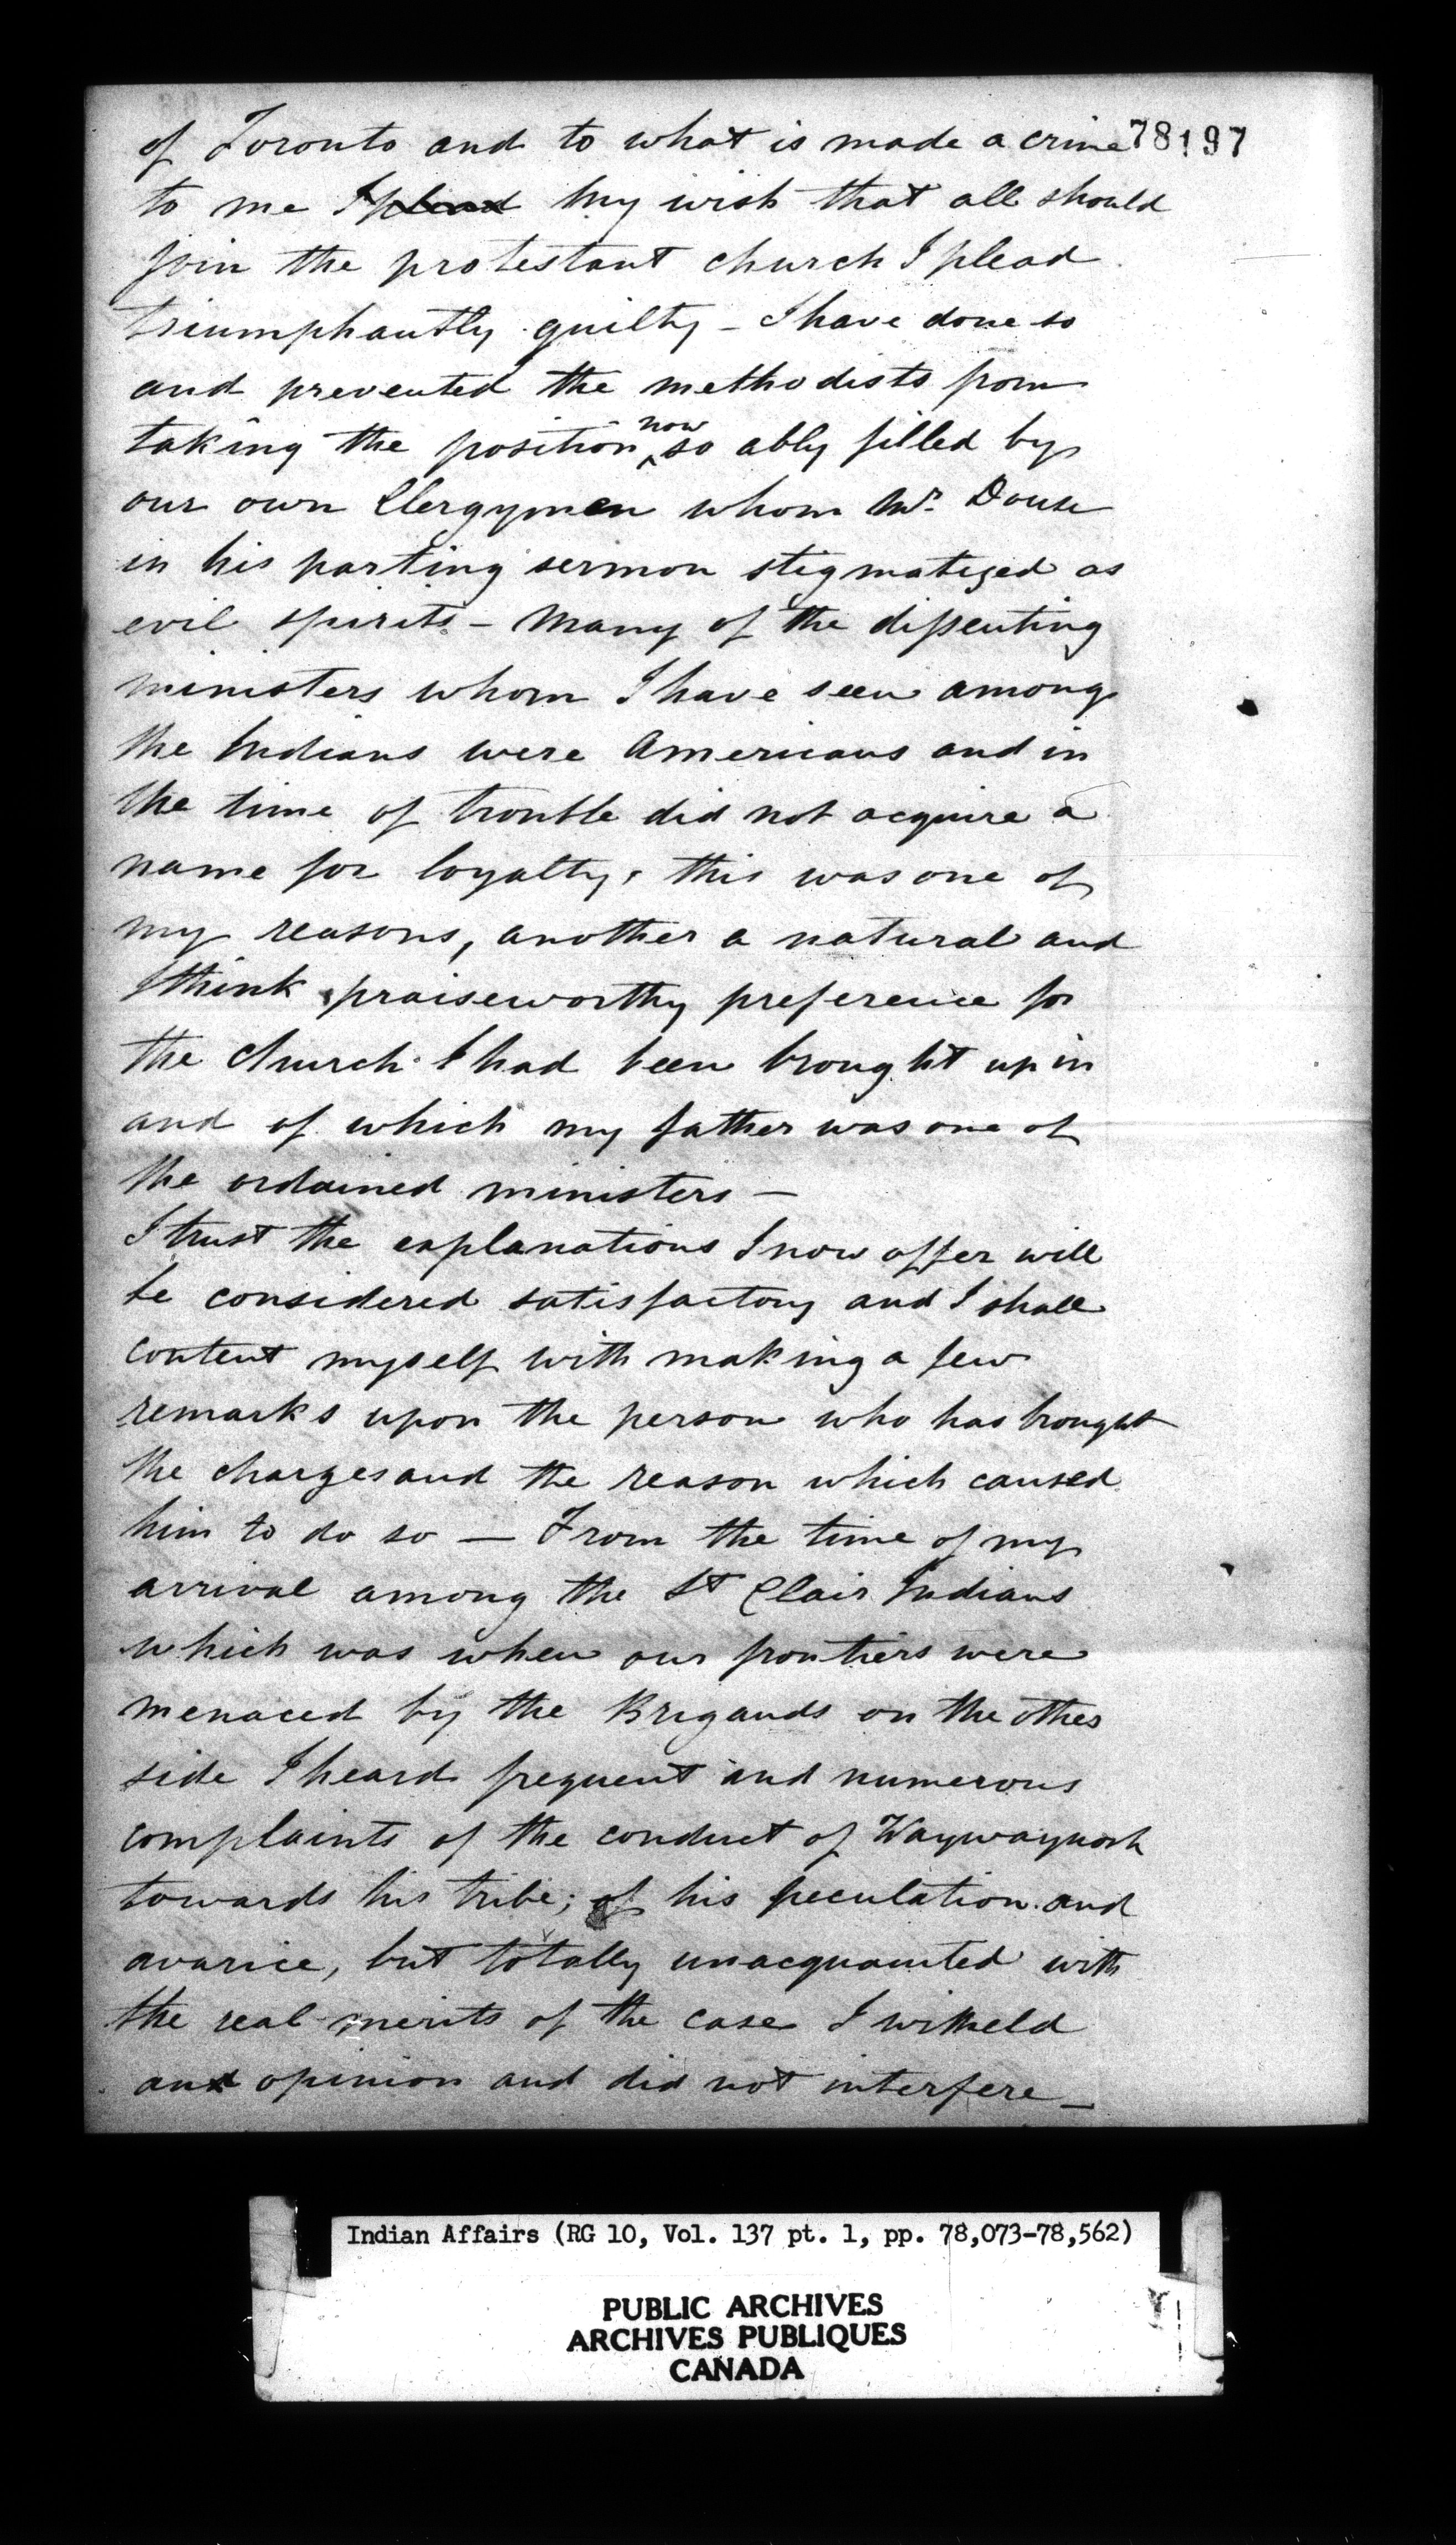 of Toronto and to what is made a crime 78197
to me I plead my wish that all should
join the protestant church I plead
triumphantly guilty - I have done so
and prevented the methodists from
taking the position now so ably filled by
our own Clergymen whom Mr. Douse
in his parting sermon stigmatized as
evil spirits - Many of the dissenting
ministers whom I have seen among
the Indians were Americans and in
the time of trouble did not acquire a
name for loyalty, this was one of
my reasons, another a natural and
I think praiseworthy preference for
the church I had been brought up in
and of which my father was one of
the ordained ministers -
I trust the explanations I now offer will
be considered satisfactory and I shall
content myself with making a few
remarks upon the person who has brought
the charges and the reason which caused
him to do so - From the time of my
arrival among the St Clair Indians
which was when our frontiers were
menaced by the Brigands on the other
side I heard frequent and numerous
complaints of the conduct of Waywaynosh
towards his tribe; of his peculation and
avarice, but totally unacquainted with
the real merits of the case I witheld
an opinion and did not interfere -
Indian Affairs (RG 10, Vol. 137 pt. 1, pp. 78,073-78,562)
PUBLIC ARCHIVES
ARCHIVES PUBLIQUES
CANADA